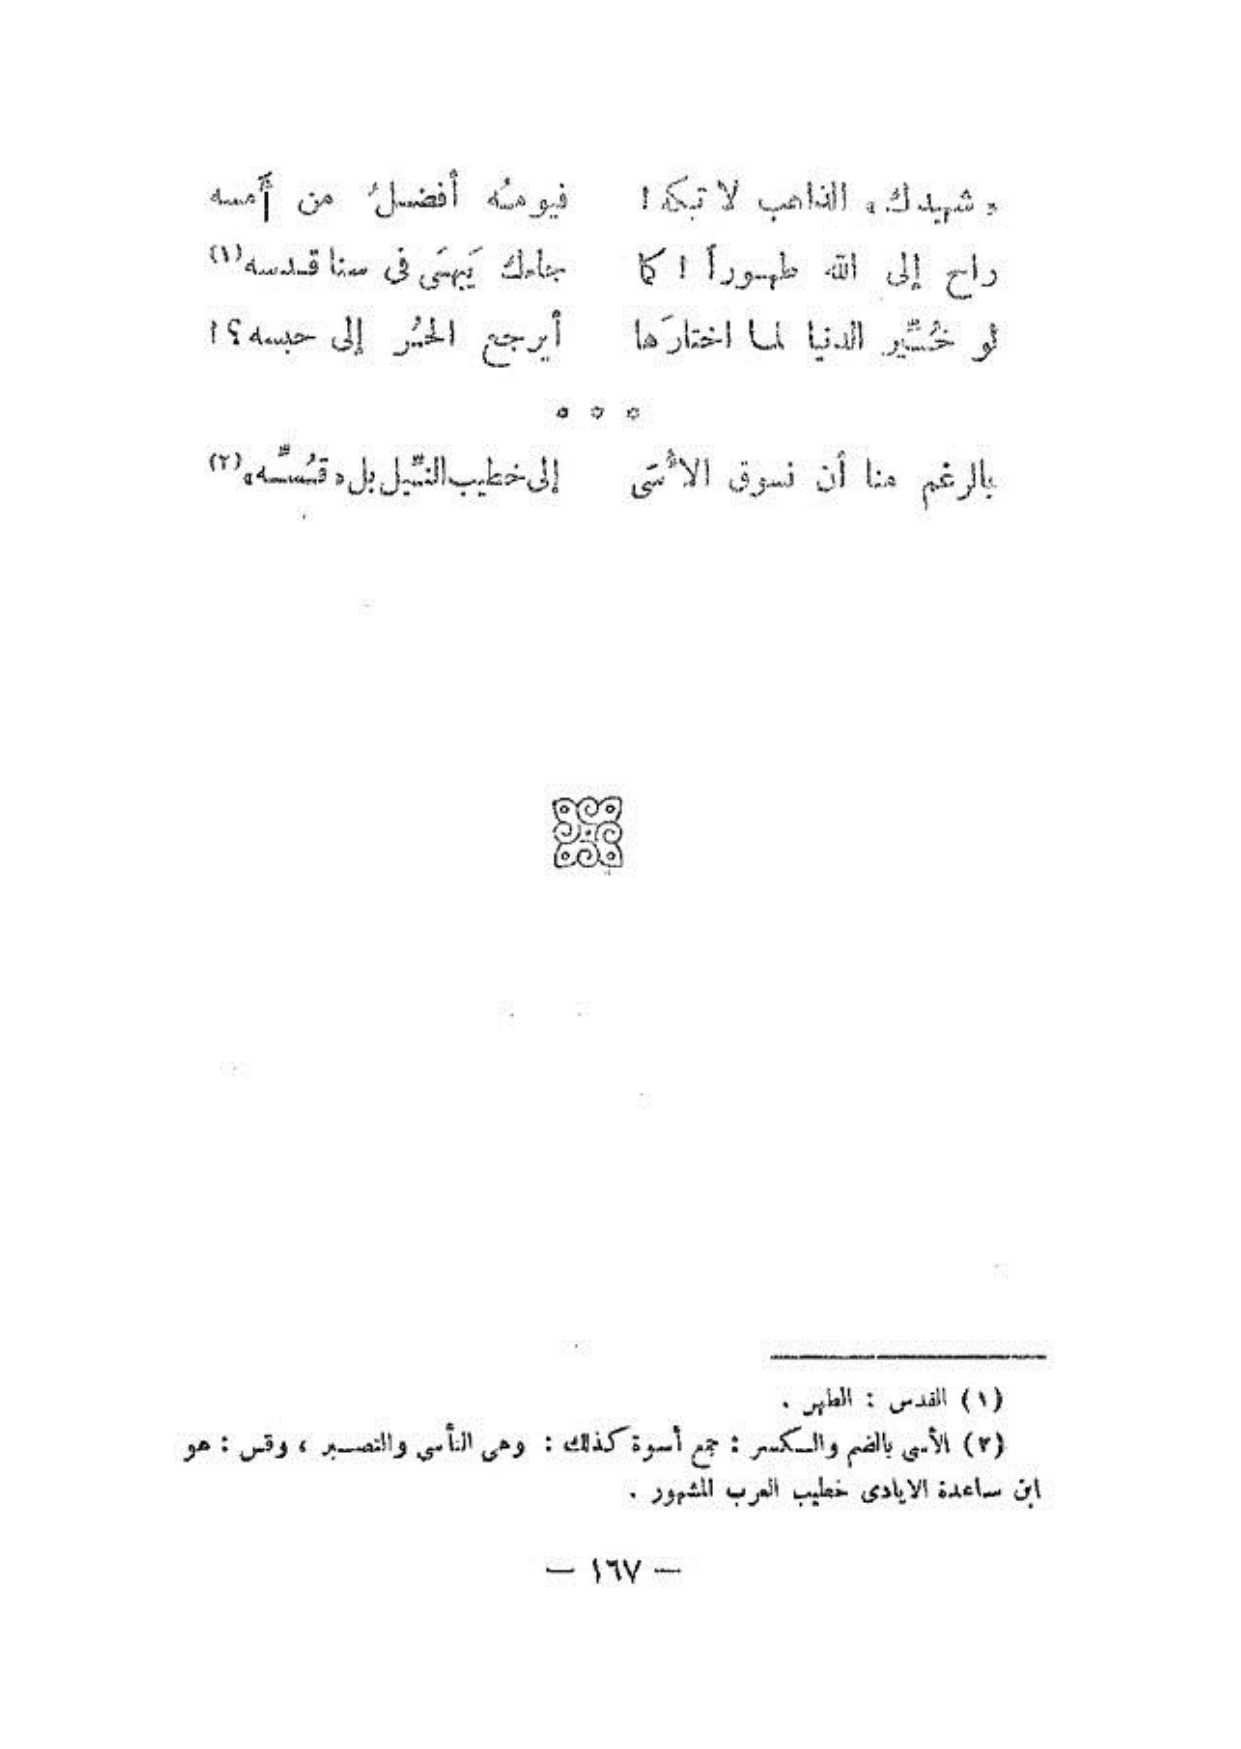 «شهيدك» الذاهب لا تبكه! فيومه أفضل من أمسه
راح إلى الله طهوراً! كما جاءك يَبهَى فى سنا قدسه (١)
لو خُيِّر الدنيا لما اختارَها أيرجع الحُر إلى حبسه؟!
* * *
بالرغم منا أن نسوق الأُسَى إلى خطيب النِّيل بل «قُسِّه» (٢)
(١) القدس : الطهر .
(٢) الأسى بالضم والكسر : جمع أسوة كذلك : وهى التأسى والتصبر ، وقس : هو
ابن ساعدة الايادى خطيب العرب المشهور .
— ١٦٧ —